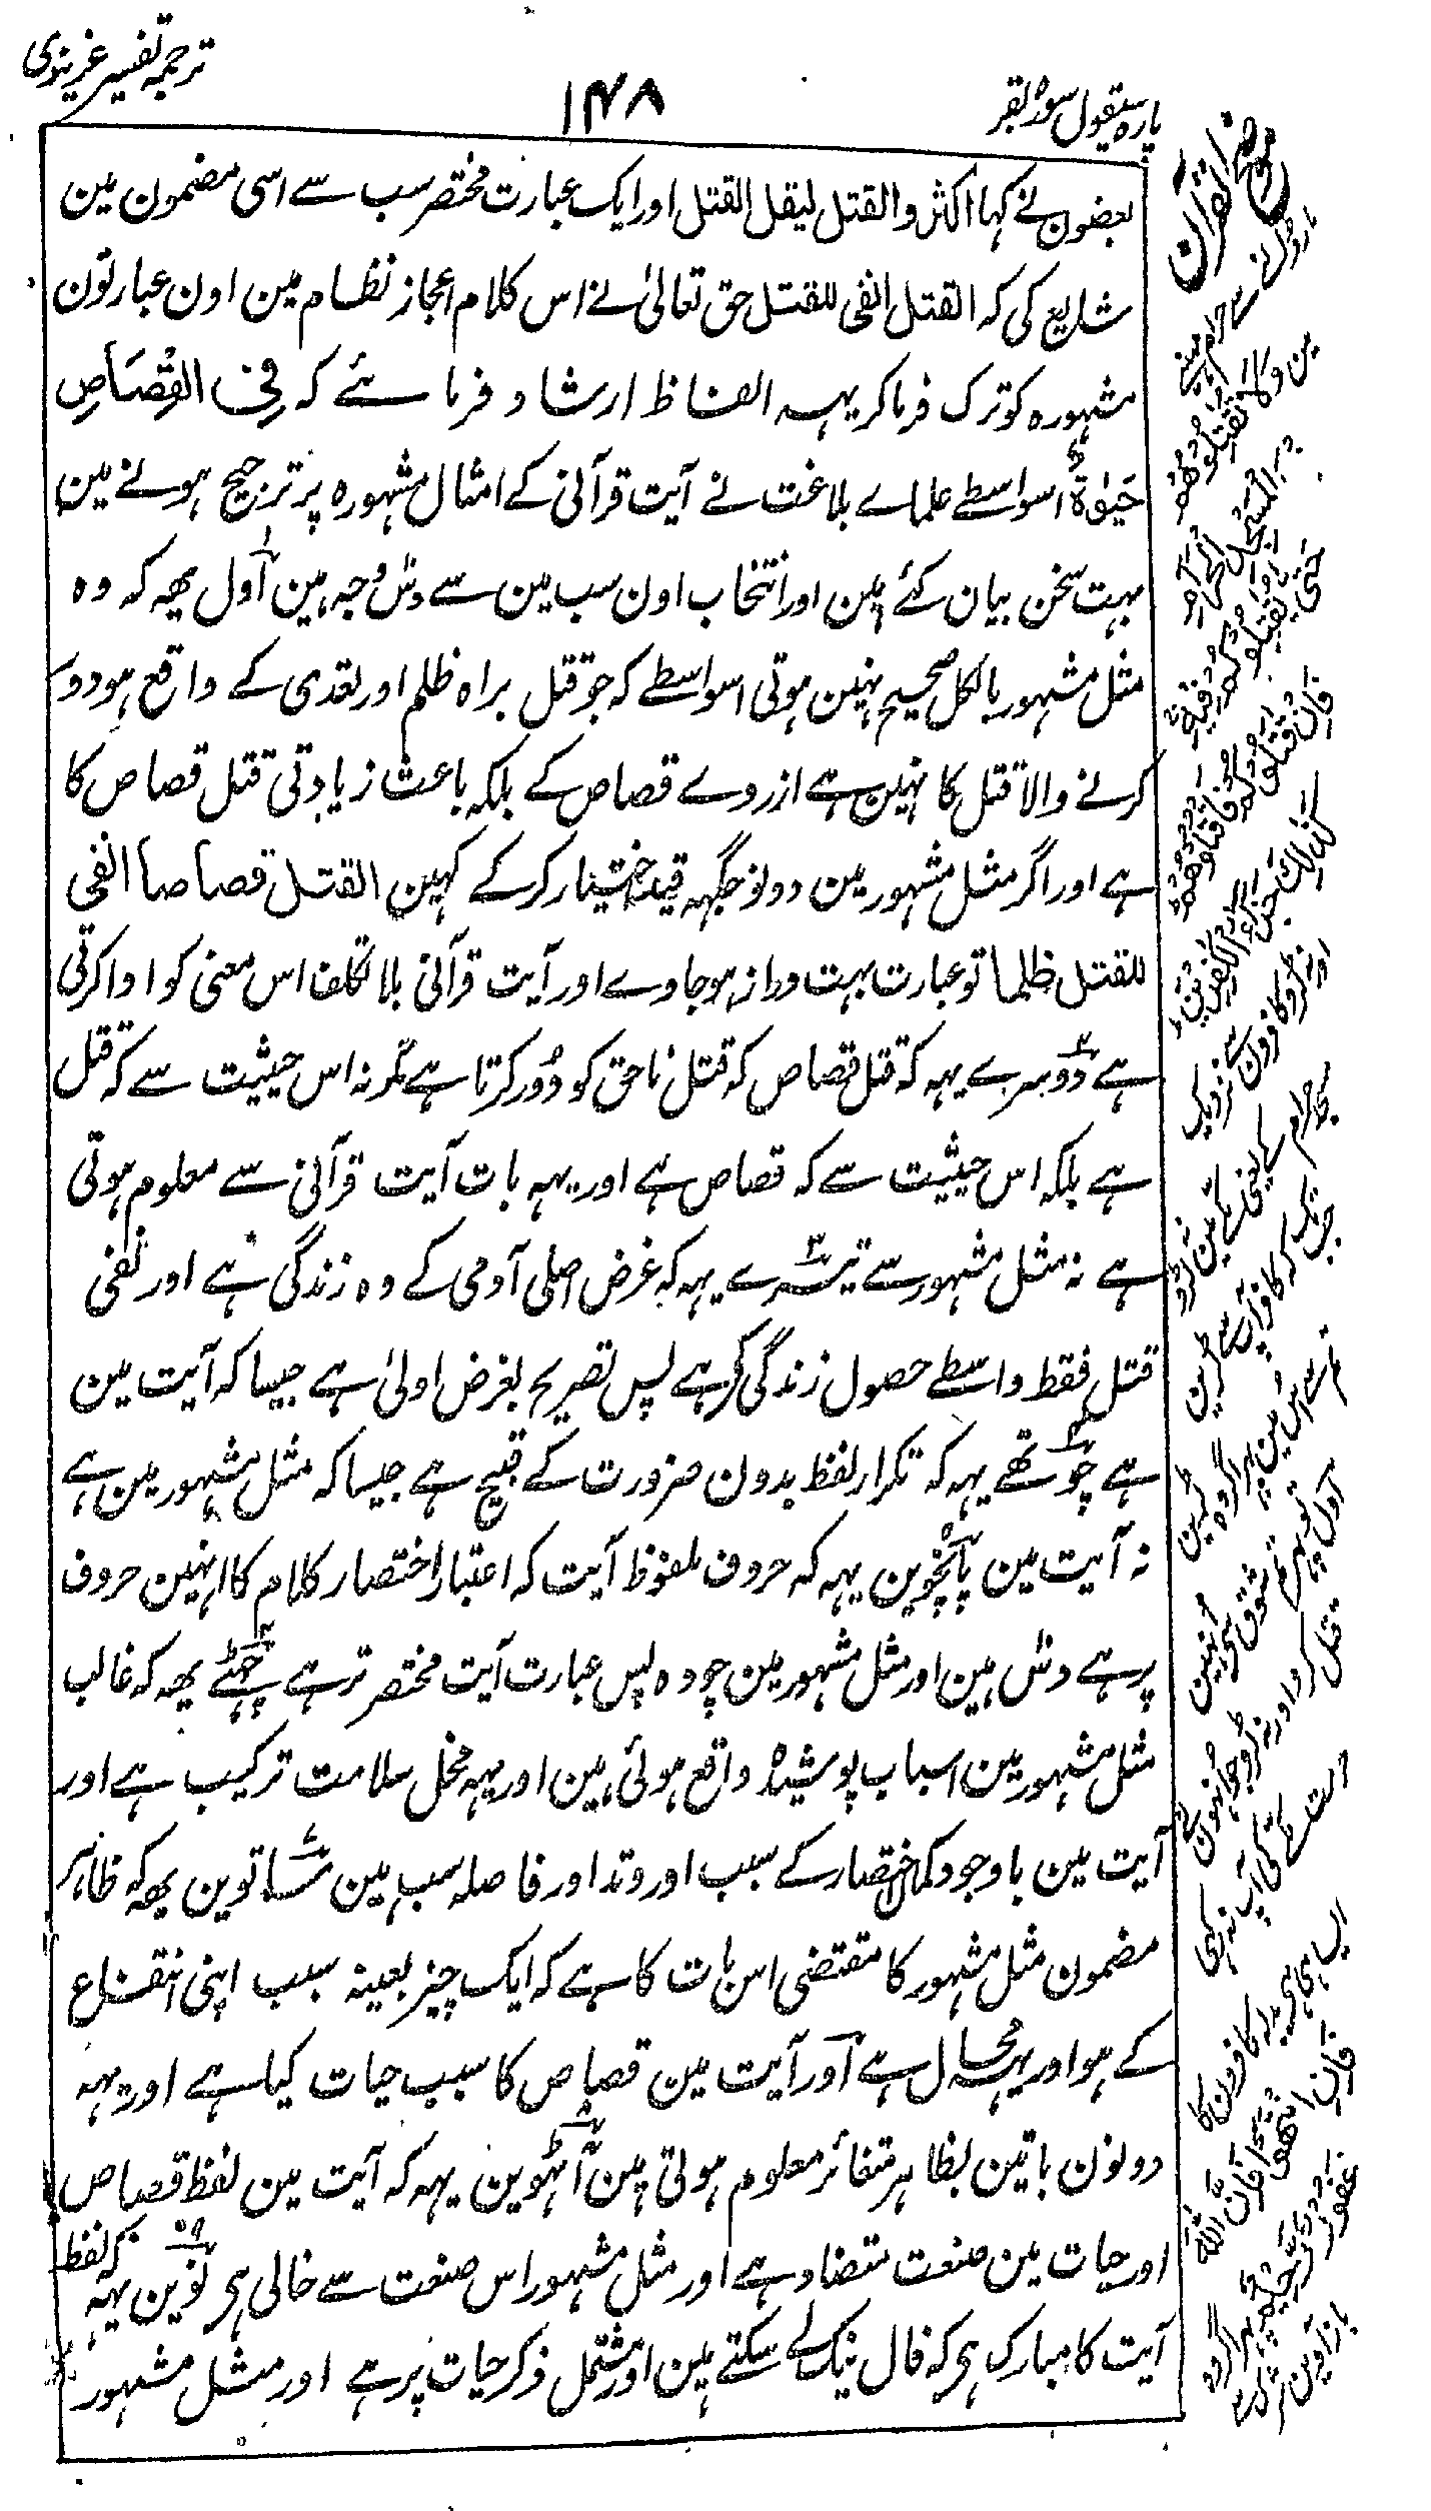 ترجمہ تفسیر عزیزی
۱۴۸
پارہ سیقول سورہ بقر
بعضون نے کہا اکثروالقتل لیقل القتل اور ایک عبارت مختصر سب سے اسی مضمون مین
شایع کی کہ القتل انفی للقتل حق تعالیٰ نے اس کلام اعجاز نظام مین اون عبارتون
مشہورہ کو ترک فرما کر یہہ الفاظ ارشاد فرمائے کہ فِی القِصَاصِ
حَیٰوۃٌ اسواسطے علماے بلاغت نے آیت قرآنی کے امثال مشہورہ پر ترجیح ہونے مین
بہت سخن بیان کئے ہین اور انتخاب اون سب مین سے دس وجہ ہین اول یہہ کہ وہ
مثل مشہور بالکل صحیح نہین ہوتی اسواسطے کہ جو قتل براہ ظلم اور تعدی کے واقع ہو دور
کرنے والا قتل کا نہین ہے ازروے قصاص کے بلکہ باعث زیادتی قتل قصاص کا
ہے اور اگر مثل مشہور مین دونو جگہہ قید اختیار کر کے کہین القتل قصاصا انفی
للقتل ظلما تو عبارت بہت دراز ہو جاوے اور آیت قرآنی بلا تکلف اس معنی کو ادا کرتی
ہے دوسرے یہہ کہ قتل قصاص کہ قتل ناحق کو دُور کرتا ہے مگر نہ اس حیثیت سے کہ قتل
ہے بلکہ اس حیثیت سے کہ قصاص ہے اور یہہ بات آیت قرآنی سے معلوم ہوتی
ہے نہ مثل مشہور سے تیسرے یہہ کہ غرض اصلی آدمی کے وہ زندگی ہے اور نفی
قتل فقط واسطے حصول زندگی کے ہے پس تصریح بغرض اولیٰ ہے جیسا کہ آیت مین
ہے چوتھے یہہ کہ تکرار لفظ بدون ضرورت کے قبیح ہے جیسا کہ مثل مشہور مین ہے
نہ آیت مین پانچوین یہہ کہ حروف ملفوظ آیت کہ اعتبار اختصار کلام کا انہین حروف
پر ہے دس ہین اور مثل مشہور مین چودہ پس عبارت آیت مختصر تر ہے چھٹے یہہ کہ غالب
مثل مشہور مین اسباب پوشیدہ واقع ہوئی ہین اور یہہ مخل سلامت ترکیب ہے اور
آیت مین باوجود کمال اختصار کے سبب اور وتد اور فاصلہ سب ہین ساتوین یہہ کہ ظاہر
مضمون مثل مشہور کا مقتضی اس بات کا ہے کہ ایک چیز بعینہ سبب اپنی انتفاع
کے ہو اور یہہ محال ہے اور آیت مین قصاص کا سبب حیات کیا ہے اور یہہ
دونون باتین بظاہر متغائر معلوم ہوتی ہین آٹھوین یہہ کہ آیت مین لفظ قصاص
اور حیات مین صنعت متضاد ہے اور مثل مشہور اس صنعت سے خالی ہی نوین یہہ کہ لفظ
آیت کا مبارک ہی کہ فال نیک لے سکتے ہین اور مشتمل ذکر حیات پر ہے اور مثل مشہور
موضح القرآن
وَلَا تُقٰتِلُوْهُمْ
عِنْدَ الْمَسْجِدِ الْحَرَامِ
حَتّٰی يُقٰتِلُوْكُمْ فِيْهِ
فَاِنْ قٰتَلُوْكُمْ فَاقْتُلُوْهُمْ
كَذٰلِكَ جَزَآءُ الْكٰفِرِيْنَ
اور نہ لڑو کافرون سے نزدیک
مسجد حرام کے
جب تک کہ کافر آپ سے لڑین
تم سے اس مین پہر اگر وہ لڑین
قتل کرو اور نہ
ایسا ہی ہی بدلہ کافرون کا
فَاِنِ انْتَهَوْا فَاِنَّ اللّٰهَ
غَفُوْرٌ رَّحِيْمٌ پہر اگر وہ